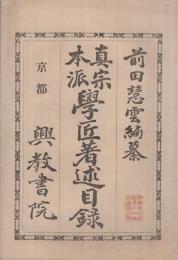 前田慧雲編纂
真宗
本派
學匠著述目録
京都
興教書院